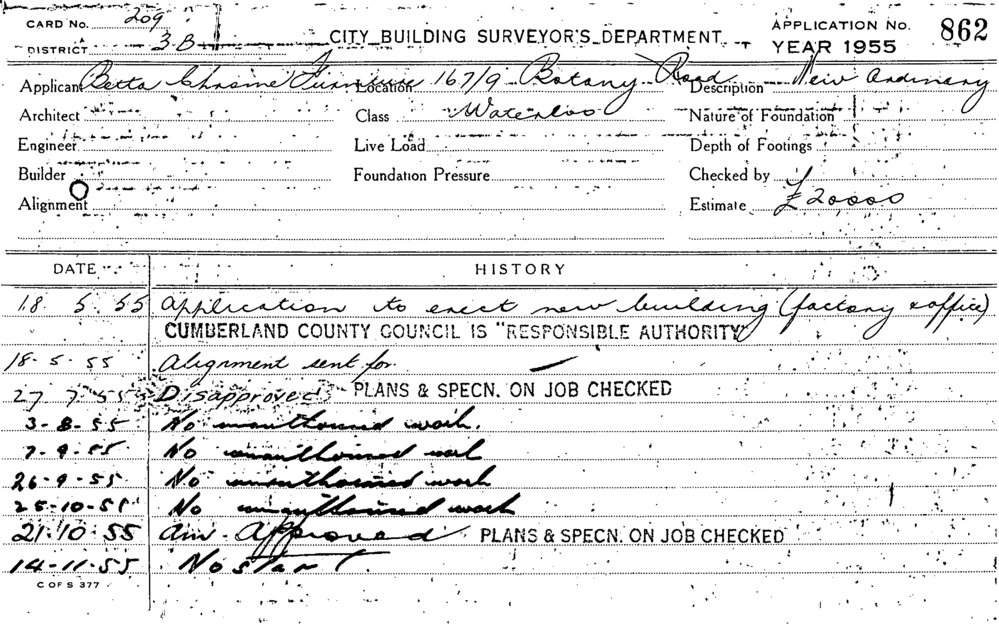 CARD No. 209
DISTRICT 3B
CITY BUILDING SURVEYOR'S DEPARTMENT
APPLICATION No. 862
YEAR 1955
Applicant Betta Chrome Furniture Location 167/9 Botany Road Description New Ordinary
Architect Class Waterloo Nature of Foundation
Engineer Live Load Depth of Footings
Builder Foundation Pressure Checked by
Alignment Estimate £20000
DATE HISTORY
18 5 55 Application to erect new building (factory & office)
CUMBERLAND COUNTY COUNCIL IS "RESPONSIBLE AUTHORITY"
18-5-55 Alignment sent for
27 7 55 Disapproved PLANS & SPECN. ON JOB CHECKED
3-8-55 No unauthorised work.
7-9-55 No unauthorised work
26-9-55 No unauthorised work
25-10-55 No unauthorised work
21-10-55 Am. Approved PLANS & SPECN. ON JOB CHECKED
14-11-55 No start
C OF S 377